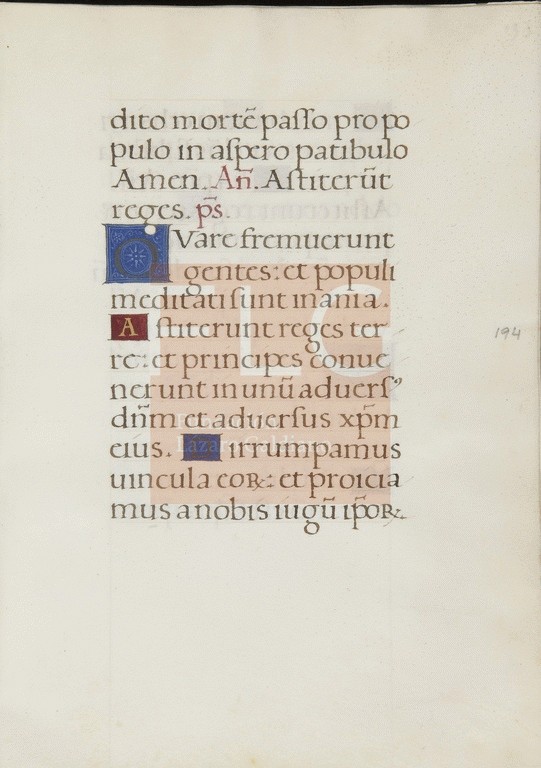 dito mortē passo pro po
pulo in aspero patibulo
Amen. Añ. Astiterūt
reges. p̄s.
QVare fremuerunt
gentes: et populi
meditati sunt inania.
Astiterunt reges ter
re: et principes conue
nerunt in unū aduersꝰ
dn̄m et aduersus xp̄m
eius. Dirrumpamus
uincula coꝝ: et proicia
mus a nobis iugū ip̄oꝝ.
194
TLG
Lázaro Galdiano